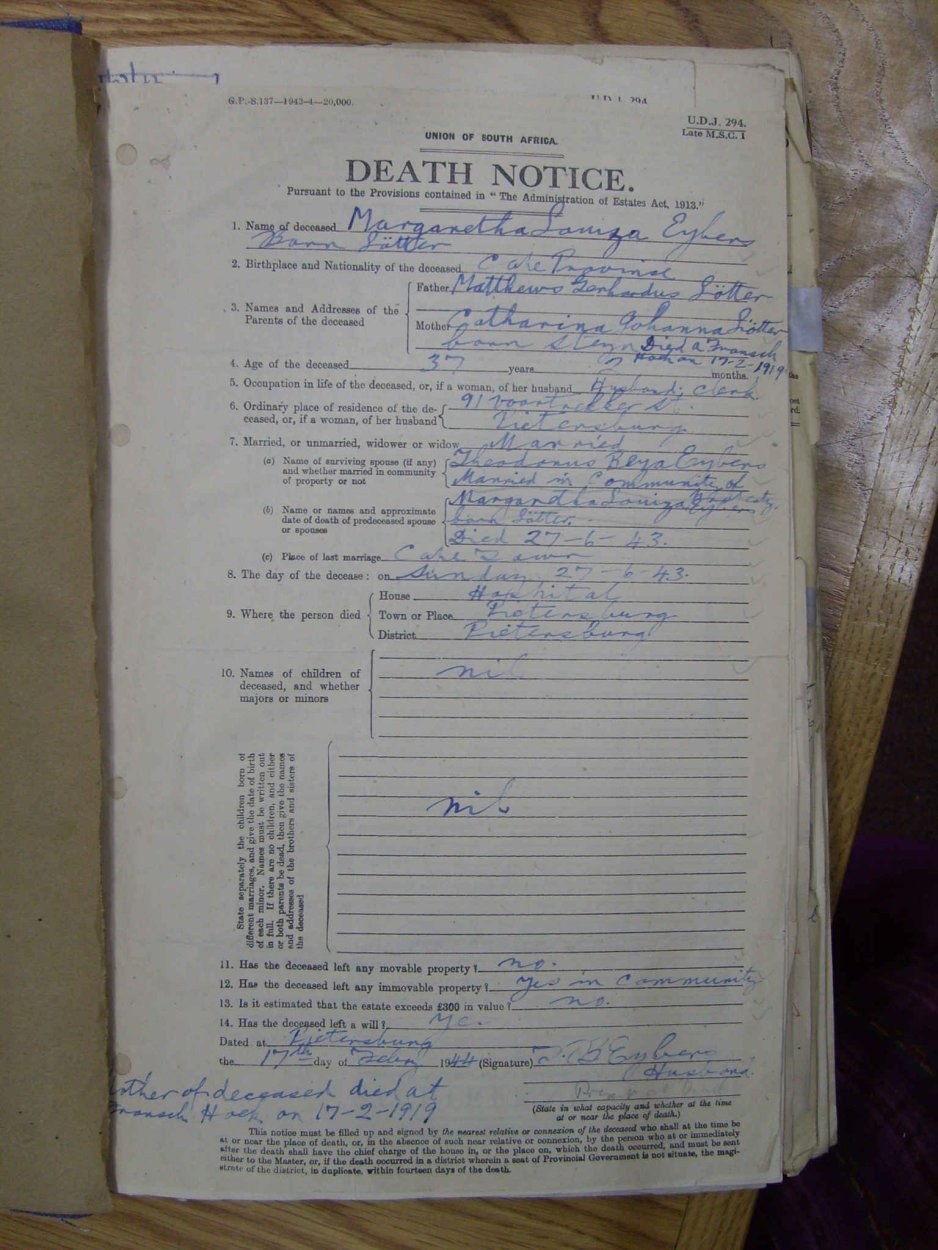 G.P.-S.137—1943-4—20,000.
U.D.J. 294
U.D.J. 294.
Late M.S.C. 1
UNION OF SOUTH AFRICA.
DEATH NOTICE.
Pursuant to the Provisions contained in "The Administration of Estates Act, 1913."
1. Name of deceased Margaretha Louiza Eybers
Born Lötter
2. Birthplace and Nationality of the deceased Cape Province
3. Names and Addresses of the Parents of the deceased
Father Matthews Gerhardus Lötter
Mother Catharina Johanna Lötter
born Steyn Died at Fransch
Hoek on 17-2-1919
4. Age of the deceased 37 years months.
5. Occupation in life of the deceased, or, if a woman, of her husband Husband; Clerk
6. Ordinary place of residence of the deceased, or, if a woman, of her husband
91 Voortrekker St.
Pietersburg
7. Married, or unmarried, widower or widow Married
(a) Name of surviving spouse (if any) and whether married in community of property or not
Theodorus Beya Eybers
Married in Community of
Property
(b) Name or names and approximate date of death of predeceased spouse or spouses
Margaretha Louiza Eybers
born Lötter.
Died 27-6-43.
(c) Place of last marriage Cape Town
8. The day of the decease: on Sunday 27-6-43.
9. Where the person died
House Hospital
Town or Place Pietersburg
District Pietersburg
10. Names of children of deceased, and whether majors or minors
nil
State separately the children born of different marriages, and give the date of birth of each minor. Names must be written out in full. If there are no children, and either or both parents be dead, then give the names and addresses of the brothers and sisters of the deceased
nil
11. Has the deceased left any movable property? no.
12. Has the deceased left any immovable property? Yes in Community
13. Is it estimated that the estate exceeds £300 in value? no.
14. Has the deceased left a will? Ye.
Dated at Pietersburg
the 17th day of Feby 1944 (Signature) T. B. Eybers
Husband.
(State in what capacity and whether at the time
at or near the place of death.)
other of deceased died at
Fransch Hoek on 17-2-1919
This notice must be filled up and signed by the nearest relative or connexion of the deceased who shall at the time be
at or near the place of death, or, in the absence of such near relative or connexion, by the person who at or immediately
after the death shall have the chief charge of the house in, or the place on, which the death occurred, and must be sent
either to the Master, or, if the death occurred in a district wherein a seat of Provincial Government is not situate, the magi-
strate of the district, in duplicate, within fourteen days of the death.